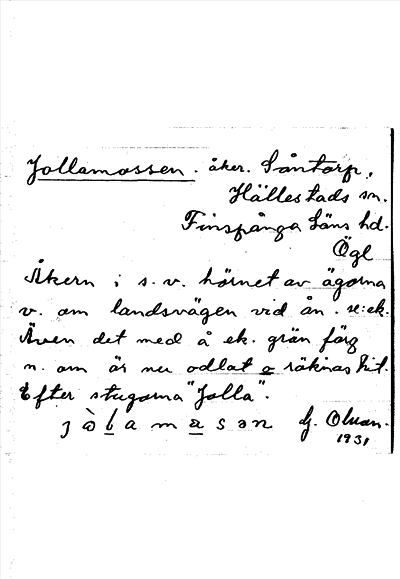 Jollamossen. åker. Såntorp,
Hällestads sn.
Finspånga läns hd.
Ögl
Åkern i s.v. hörnet av ägorna
v. om landsvägen vid ån. se: ek.
Även det med å ek. grän färg
n. om är nu odlat o räknas hit.
Efter stugorna "Jolla".
j ò l a m a s ə n G.
1931